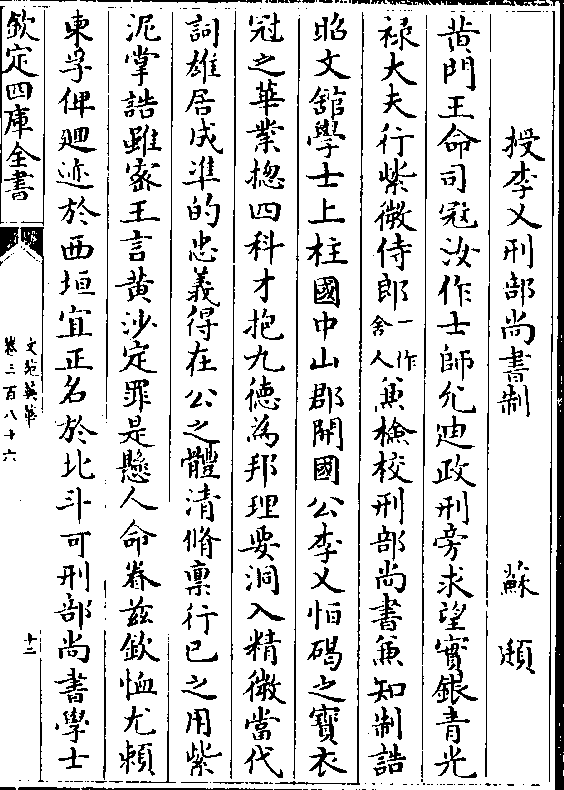 授李乂刑部尚書制 蘇頲
黄門王命司冦汝作士師允迪政刑旁求望實銀青光
禄大夫行紫微侍郎一作舍人兼檢校刑部尚書兼知制誥
昭文舘學士上柱國中山郡開國公李乂怕碣之寶衣
冠之華業揔四科才抱九德為邦理要洞入精微當代
詞雄居成準的忠義得在公之體清脩禀行已之用紫
泥掌誥雖宻王言黄沙定罪是懸人命眷兹欽恤尤頼
東孚俾廻迹於西垣宜正名於北斗可刑部尚書學士
欽定四庫全書
文苑英華
卷三百八十六
十二